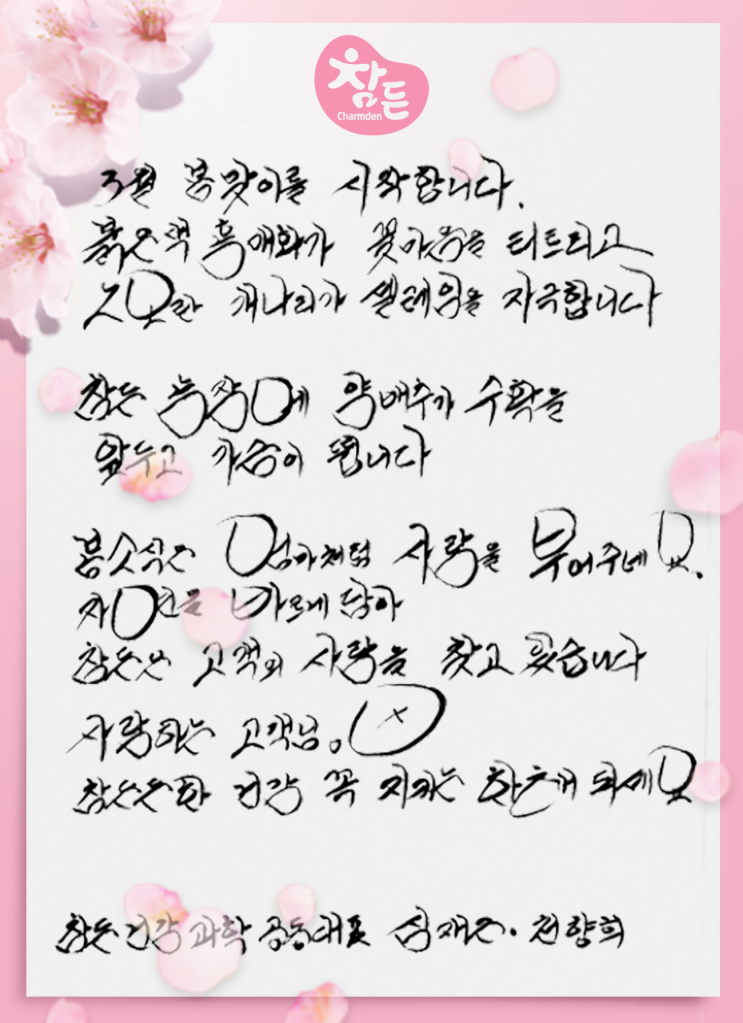 참든
Charmden
3월 봄맞이를 시작합니다.
붉은색 홍매화가 터트리고
노란 개나리가 설레임을 자극합니다
참든 농장에 양배추가 수확을
앞두고 가슴이 뜁니다
봄소식은 엄마처럼 사랑을 부어주네요.
자연을 바르게 담아
참든은 고객의 사랑을 찾고 있습니다
사랑하는 고객님。
참든든한 건강 꼭 지키는 되세요
참든건강과학 공동대표 심재은·천향희